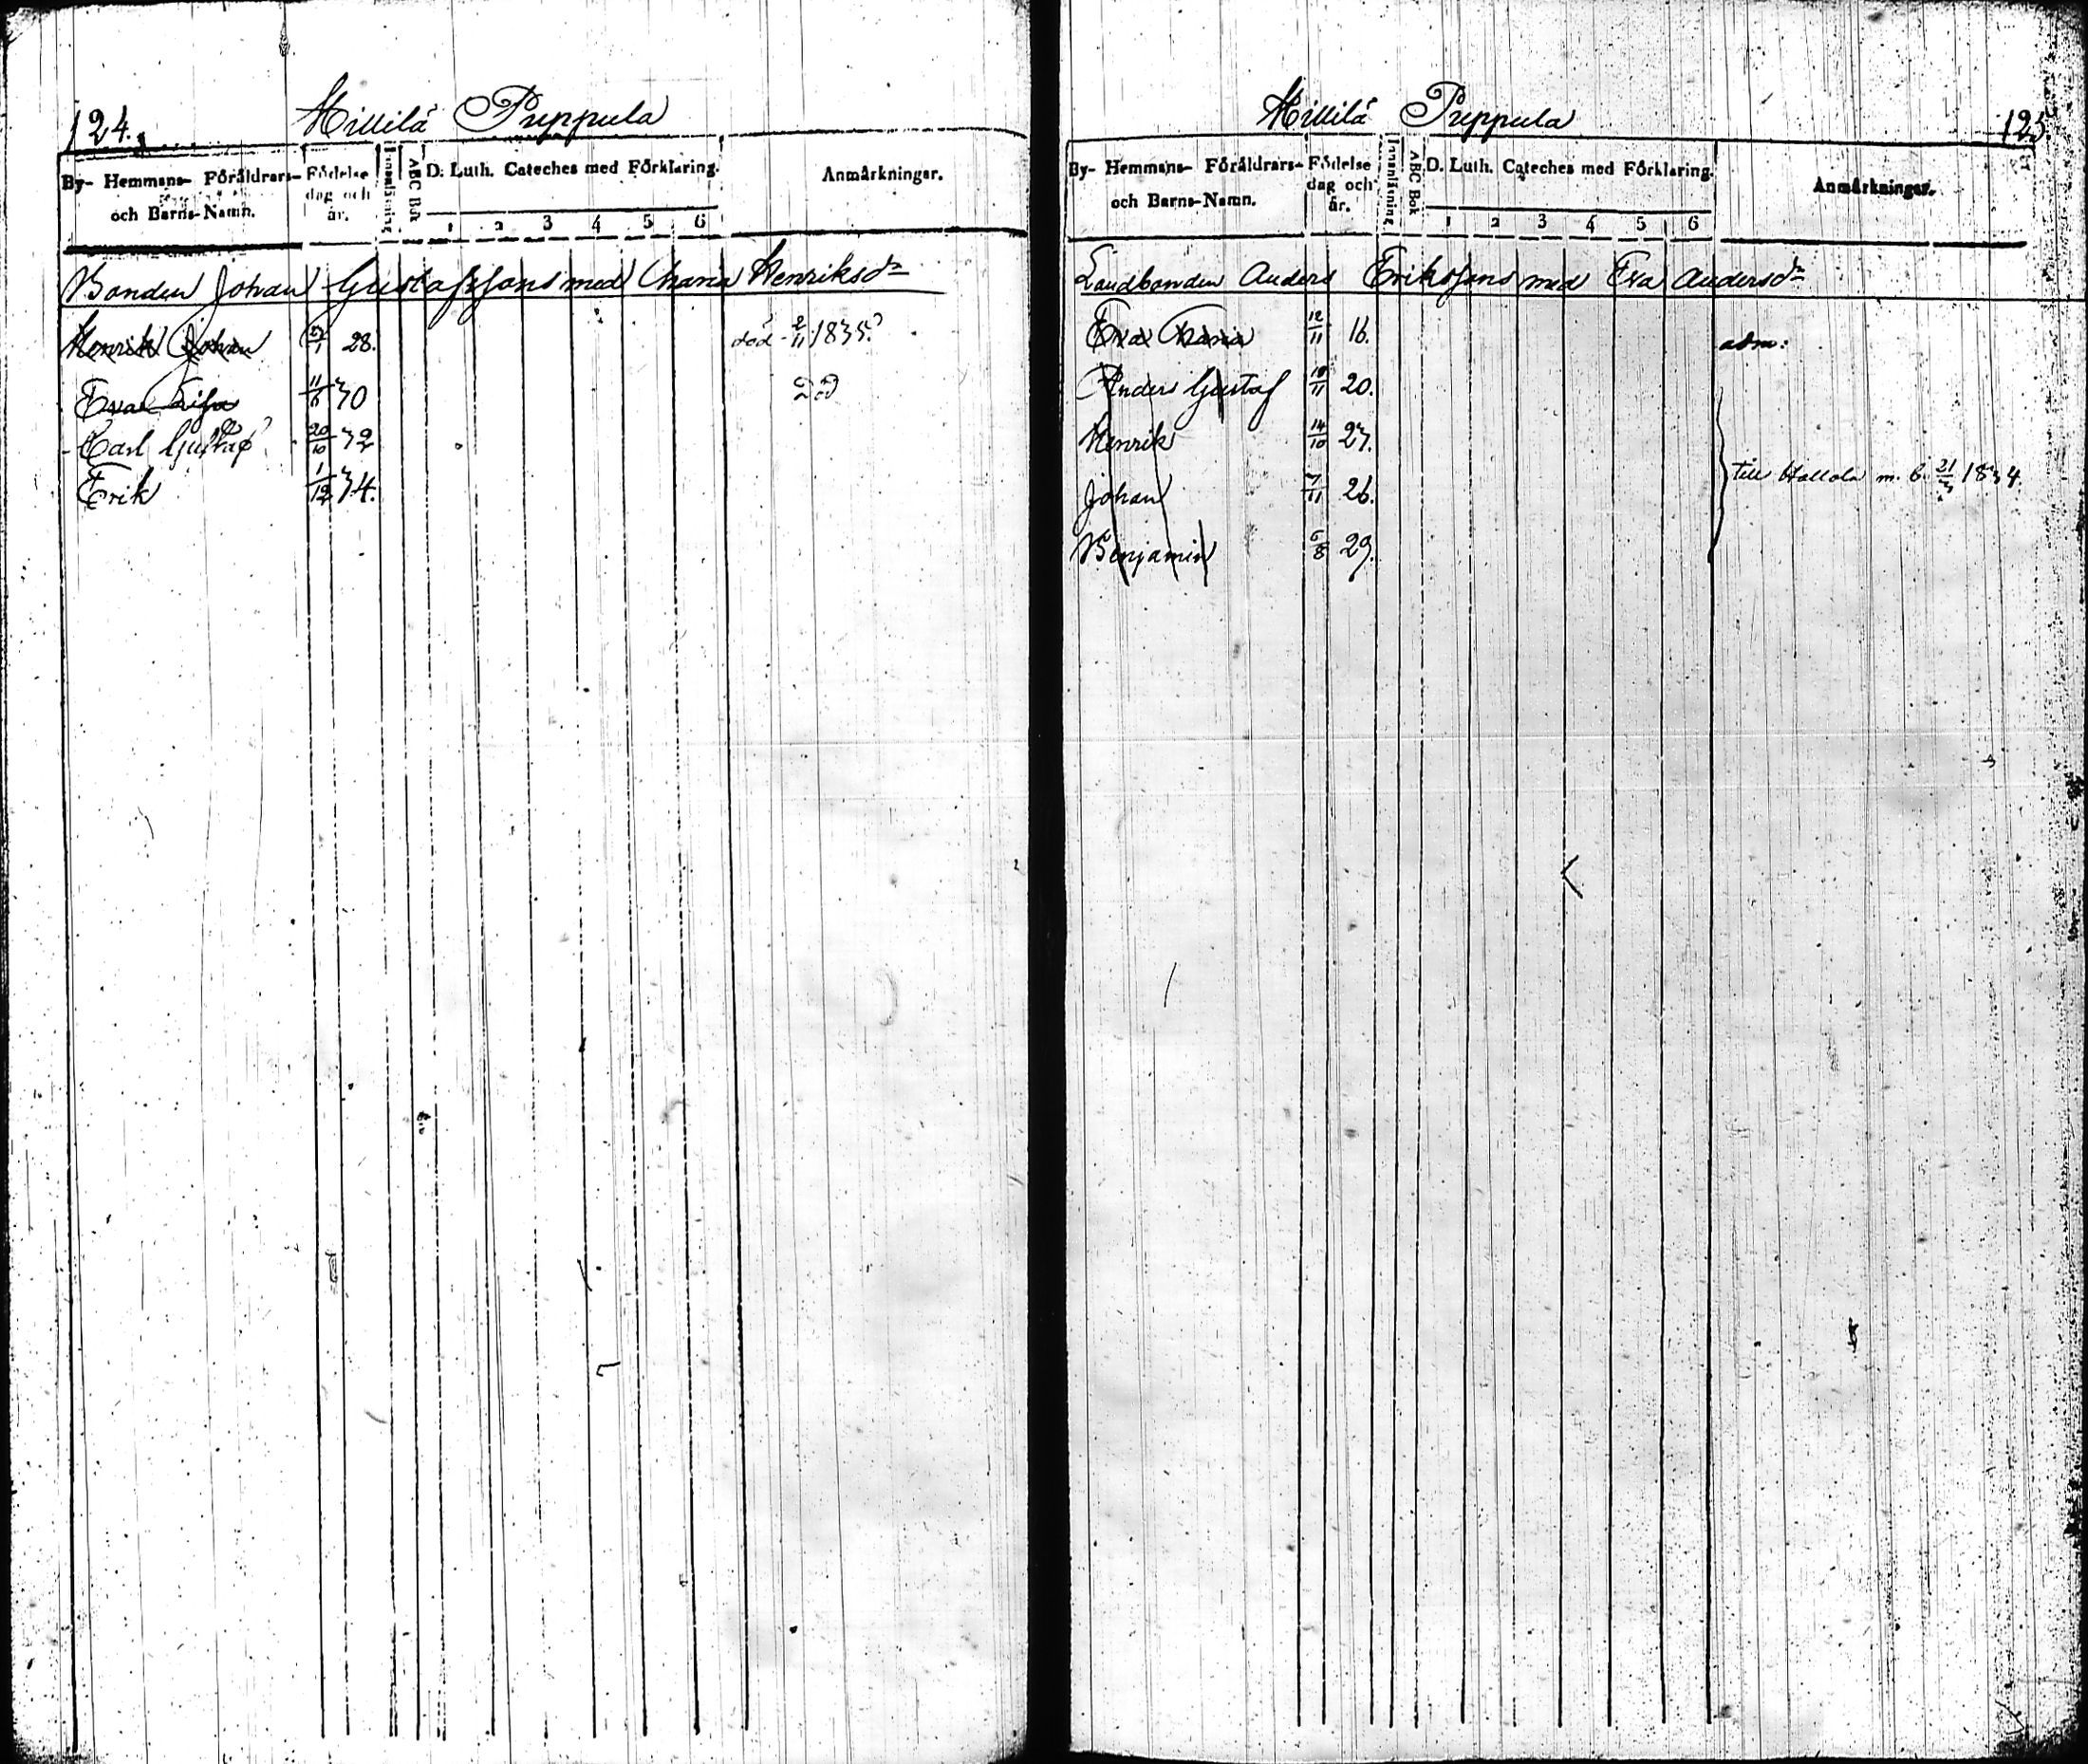 124.
Millilä Puppula
By- Hemmans- Föräldrars- och Barns-Namn.
Födelse dag och år.
Innanläsning
ABC Bok
D. Luth. Cateches med Förklaring.
1 2 3 4 5 6
Anmärkningar.
Bonden Johan Gustafssons med Maria Henriksdr
Henrik Johan 28. död 2/11 1835.
Eva Lisa 11/6 30
Carl Gustaf 20/10 32
Erik 1/12 34.
Millilä Puppula
125.
By- Hemmans- Föräldrars- och Barns-Namn.
Födelse dag och år.
Innanläsning
ABC Bok
D. Luth. Cateches med Förklaring.
1 2 3 4 5 6
Anmärkningar.
Landbonden Anders Erikssons med Eva Andersdr
Eva Maria 12/11 16. adm:
Anders Gustaf 20.
Henrik 14/10 23.
Johan 7/11 26.
till Hollola m. b. 1834.
Benjamin 6/8 29.